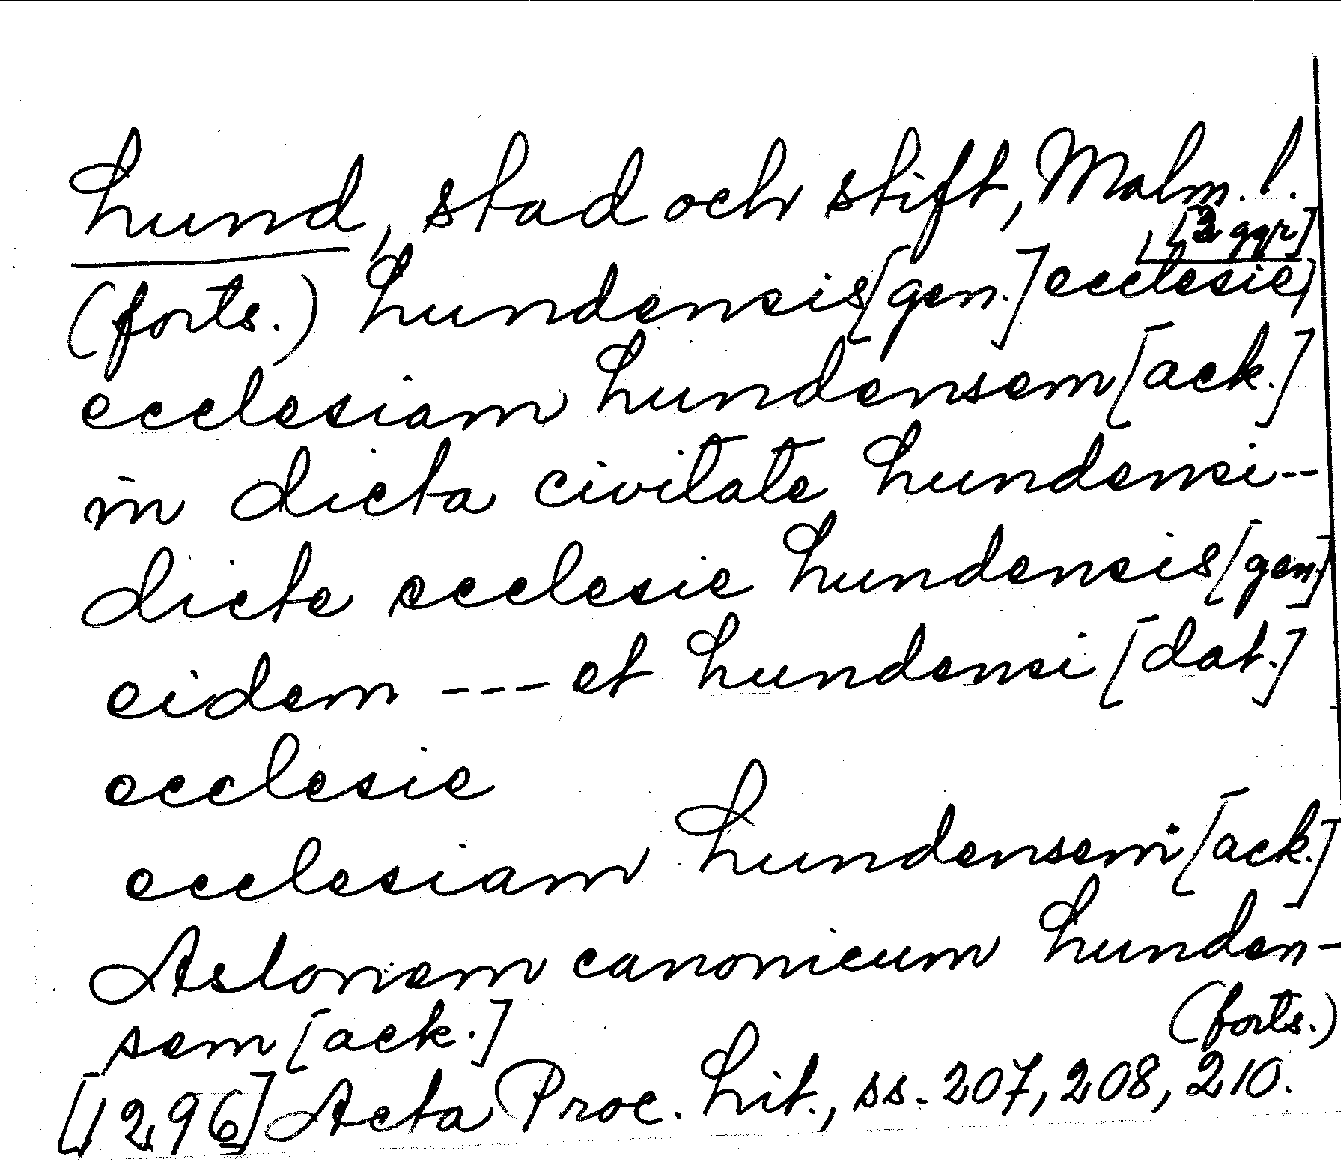 Lund, stad och stift, Malm. l.
(forts.) Lundensis [gen.] ecclesie, [2 ggr]
ecclesiam Lundensem [ack.]
in dicta civitate Lundensi--
dicte ecclesie Lundensis [gen.]
eidem --- et Lundensi [dat.]
ecclesie
ecclesiam Lundensem [ack.]
Astonem canonicum Lunden-
sem [ack.] (forts.)
[1296] Acta Proc. Lit., ss. 207, 208, 210.